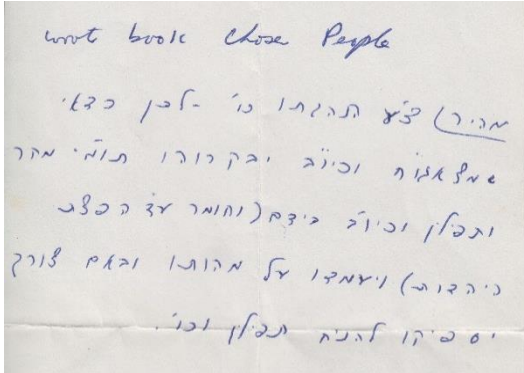 wrot book Chose People
מהיר) צ"ע הנהגתו כו' - לכן כדאי
שמצאגו"ח וכיו"ב יבקרוהו תומ"י מהר
ותפילין וכיו"ב בידם (וחומר ע"ד הפצת
היהדות) ויעמדו על מהותו ובאם צורך
יספיקו להניח תפילין וכו'.